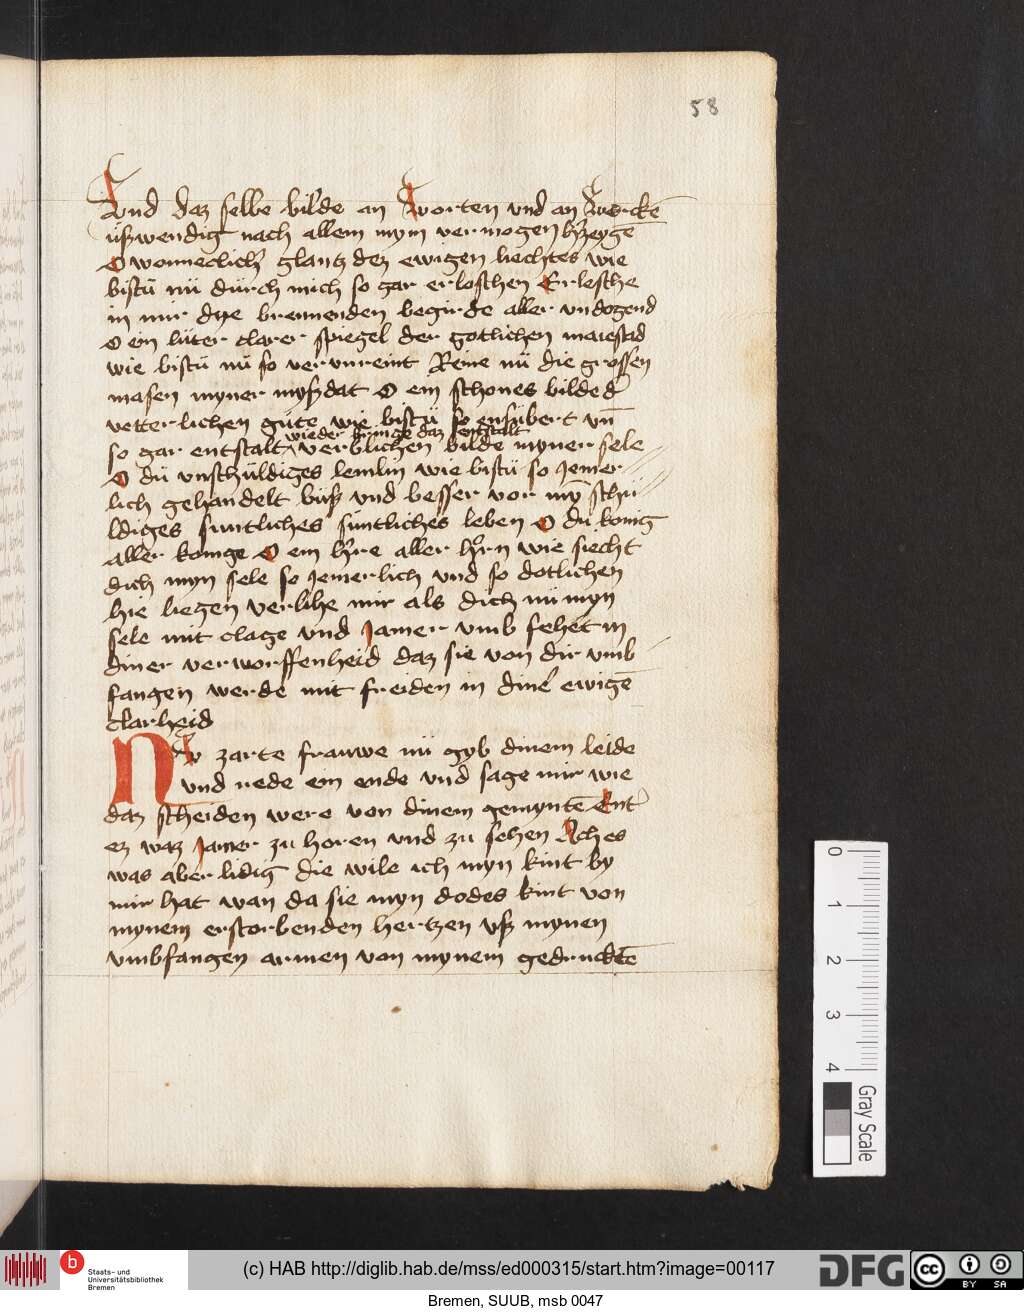 58
Vnd daz selbe bilde an worten vnd an wercke᷑
ußwendig nach allem mym vermogen bꝫeyge᷑
O wonneclich' glantz dez ewigen liechtes wie
bistu nu durch mich so gar erloschen Erlesche
in mir dye brennenden begirde aller vndogend
O ein luter clarer spiegel der gotlichen maiestad
wie bistu nu so vervnreint Reine nu die grossen
masen myner myßdat O ein schones bilde d'
vetterlichen gute wie bistu so ensubert vn̄
wieder bringe daz entstalt
so gar entstalt verblichen bilde myner sele
O du vnschuldiges lemlin wie bistu so Jemer
lich gehandelt buß vnd besser vor my̅ schu
ldiges suntliches suntliches leben O du konig
aller konige O ein h're aller h'rn wie siecht
dich myn sele so Jemerlich vnd so dotlichen
hie liegen verlihe mir als dich nu myn
sele mit clage vnd Jamer vmb fehet in
diner verworffenheid daz sie von dir vmb
fangen werde mit freiden in dine' ewige̅
clarheid
Nv zarte frauwe nu gyb dinem leide
vnd rede ein ende vnd sage mir wie
daz scheiden were von dinem gemynte̅ Ent
ez waz Jamer zu horen vnd zu sehen Ach es
was aber lidig die wile ich myn kint by
mir hat wan da sie myn dodes kint von
mynem erstorbenden hertzen vß mynen
vmbfangen armen von mynem gedruckte̅
0
1
2
3
4
Gray Scale
b
Staats- und
Universitätsbibliothek
Bremen
(c) HAB http://diglib.hab.de/mss/ed000315/start.htm?image=00117
DFG
cc
BY SA
Bremen, SUUB, msb 0047